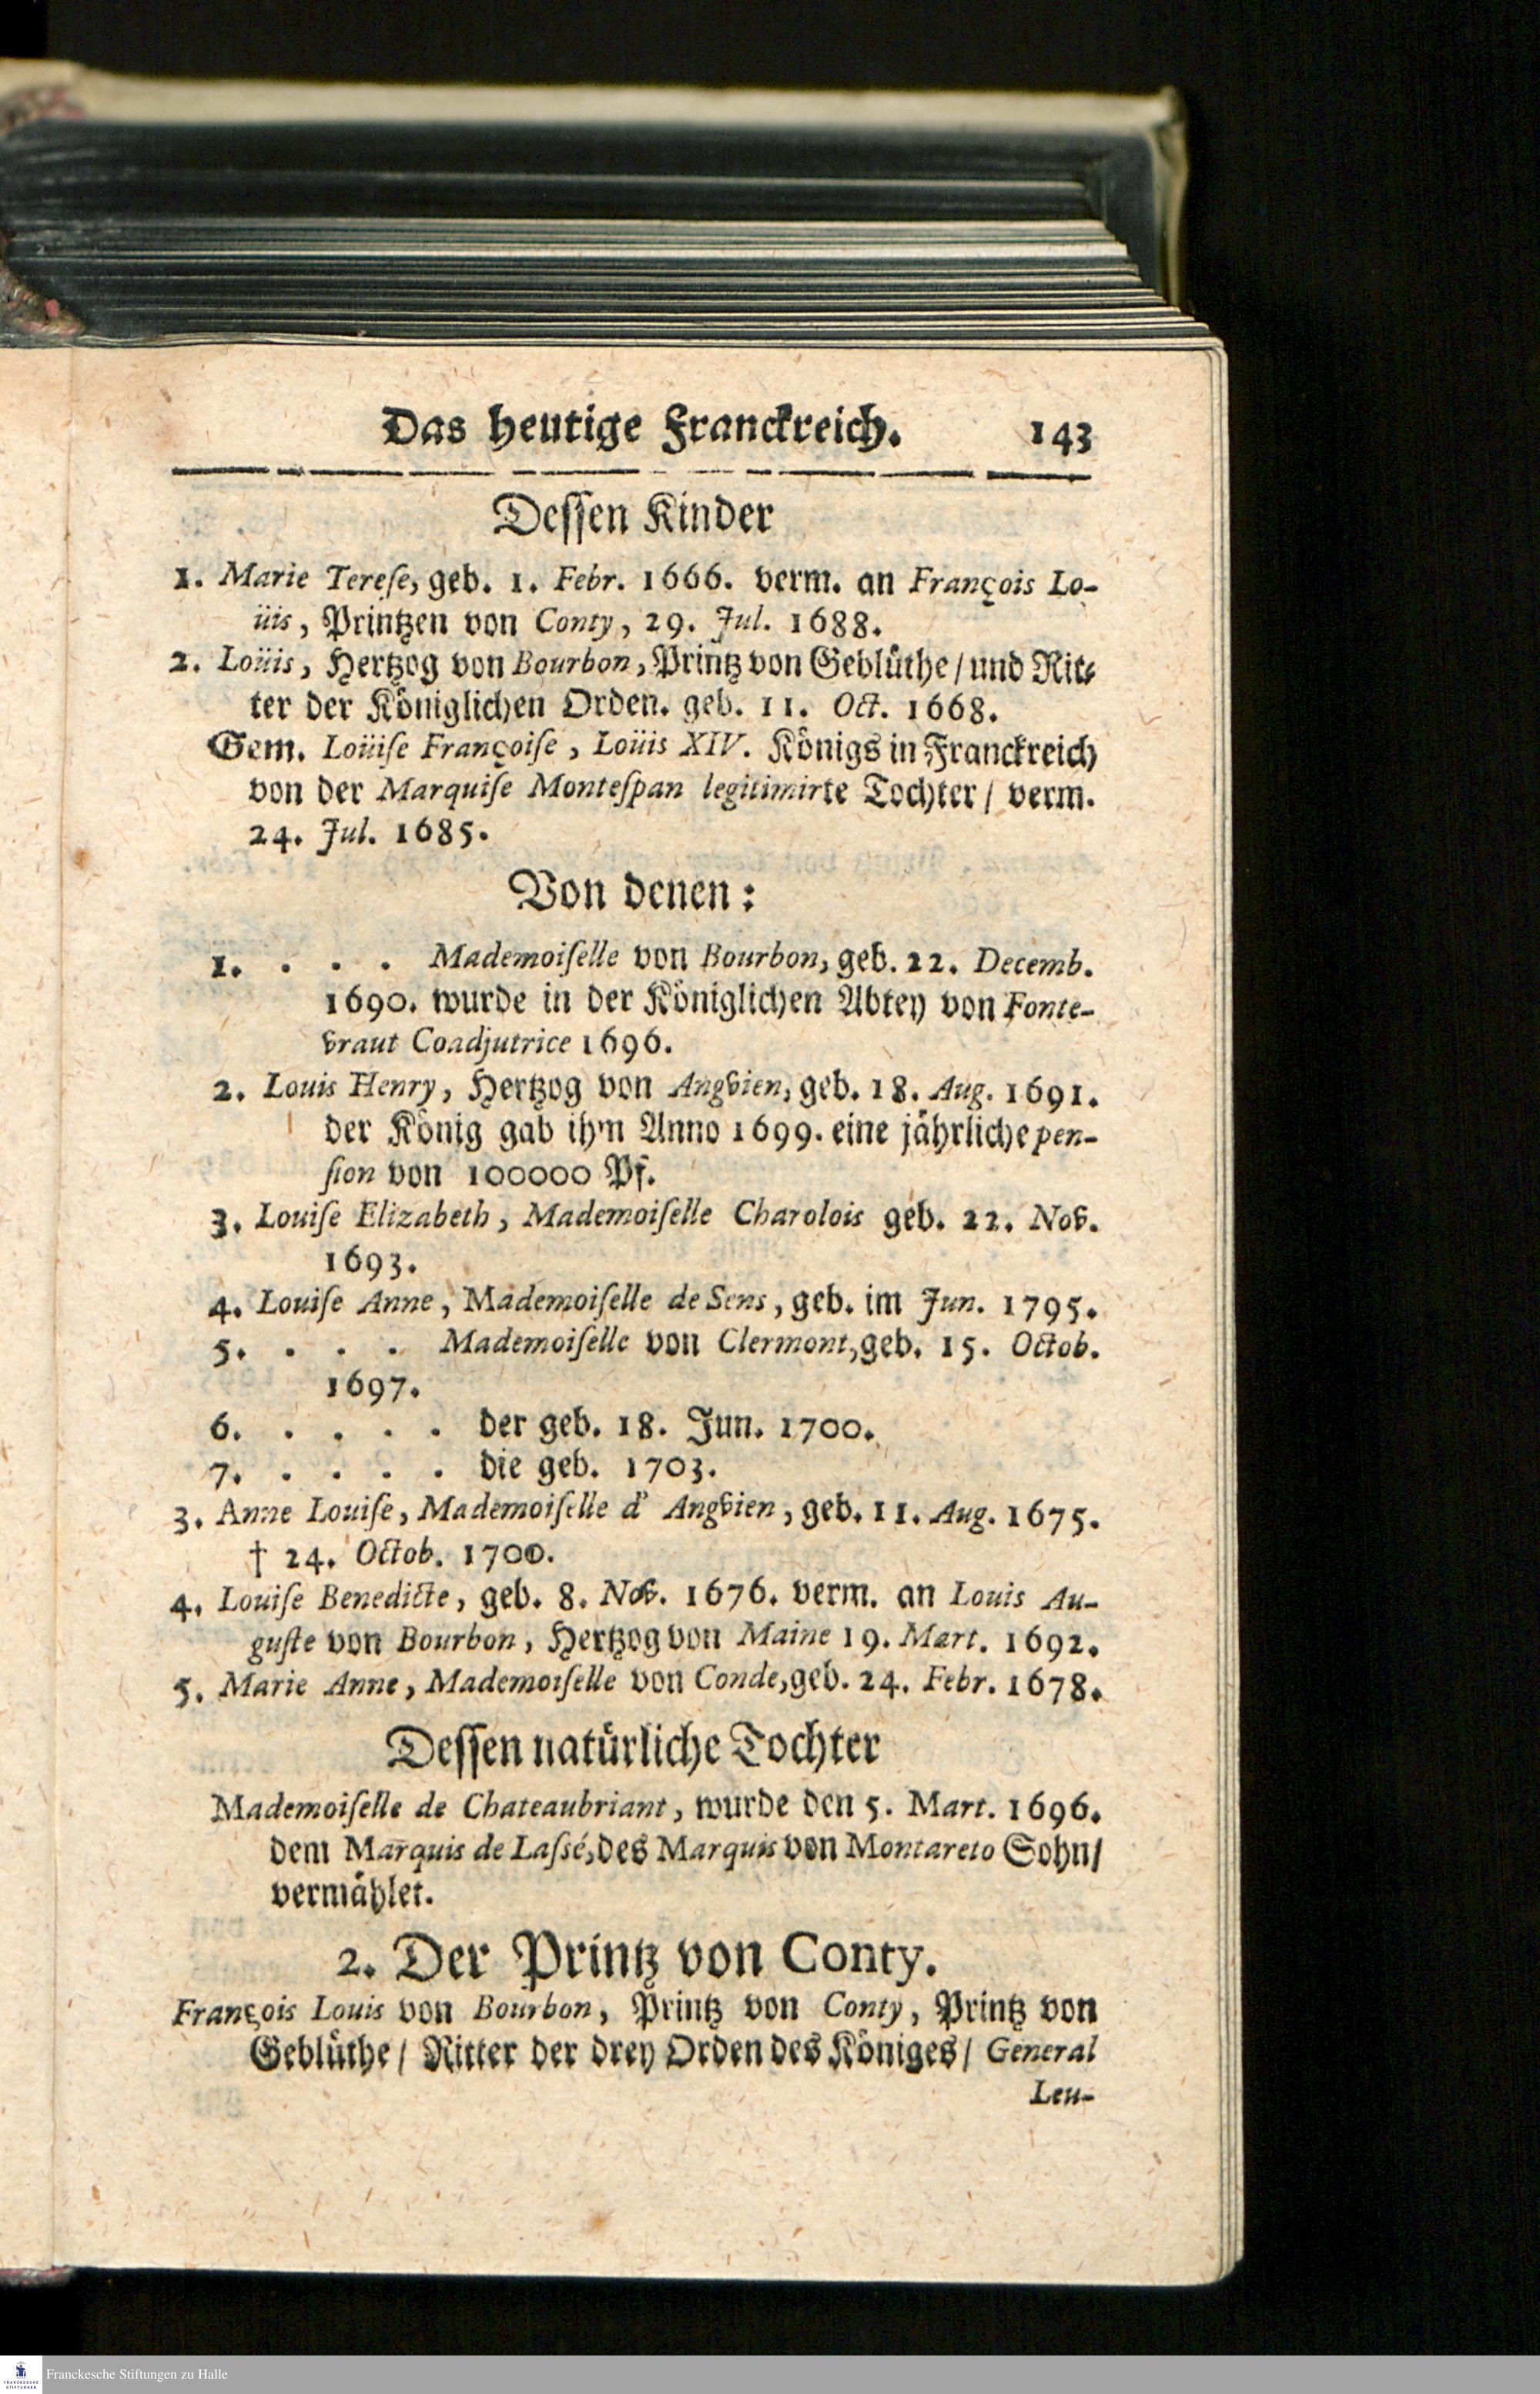 Das heutige Franckreich. 143
Dessen Kinder
1. Marie Terese, geb. 1. Febr. 1666. verm. an François Lo-
üis, Printzen von Conty, 29. Jul. 1688.
2. Loüis, Hertzog von Bourbon, Printz von Geblüthe / und Rit-
ter der Königlichen Orden. geb. 11. Oct. 1668.
Gem. Loüise Françoise, Loüis XIV. Königs in Franckreich
von der Marquise Montespan legitimirte Tochter / verm.
24. Jul. 1685.
Von denen:
1. . . . Mademoiselle von Bourbon, geb. 22. Decemb.
1690. wurde in der Königlichen Abtey von Fonte-
vraut Coadjutrice 1696.
2. Louis Henry, Hertzog von Angvien, geb. 18. Aug. 1691.
der König gab ihm Anno 1699. eine jährliche pen-
sion von 100000 Pf.
3. Louise Elizabeth, Mademoiselle Charolois geb. 22. Nov.
1693.
4. Louise Anne, Mademoiselle de Sens, geb. im Jun. 1795.
5. . . . Mademoiselle von Clermont, geb. 15. Octob.
1697.
6. . . . . der geb. 18. Jun. 1700.
7. . . . . die geb. 1703.
3. Anne Louise, Mademoiselle d' Angvien, geb. 11. Aug. 1675.
† 24. Octob. 1700.
4. Louise Benedicte, geb. 8. Nov. 1676. verm. an Louis Au-
guste von Bourbon, Hertzog von Maine 19. Mart. 1692.
5. Marie Anne, Mademoiselle von Conde, geb. 24. Febr. 1678.
Dessen natürliche Tochter
Mademoiselle de Chateaubriant, wurde den 5. Mart. 1696.
dem Marquis de Lassé, des Marquis von Montareto Sohn /
vermählet.
2. Der Printz von Conty.
François Louis von Bourbon, Printz von Conty, Printz von
Geblüthe / Ritter der drey Orden des Königes / General
Leu-
Franckesche Stiftungen zu Halle
FRANCKESCHE
STIFTUNGEN